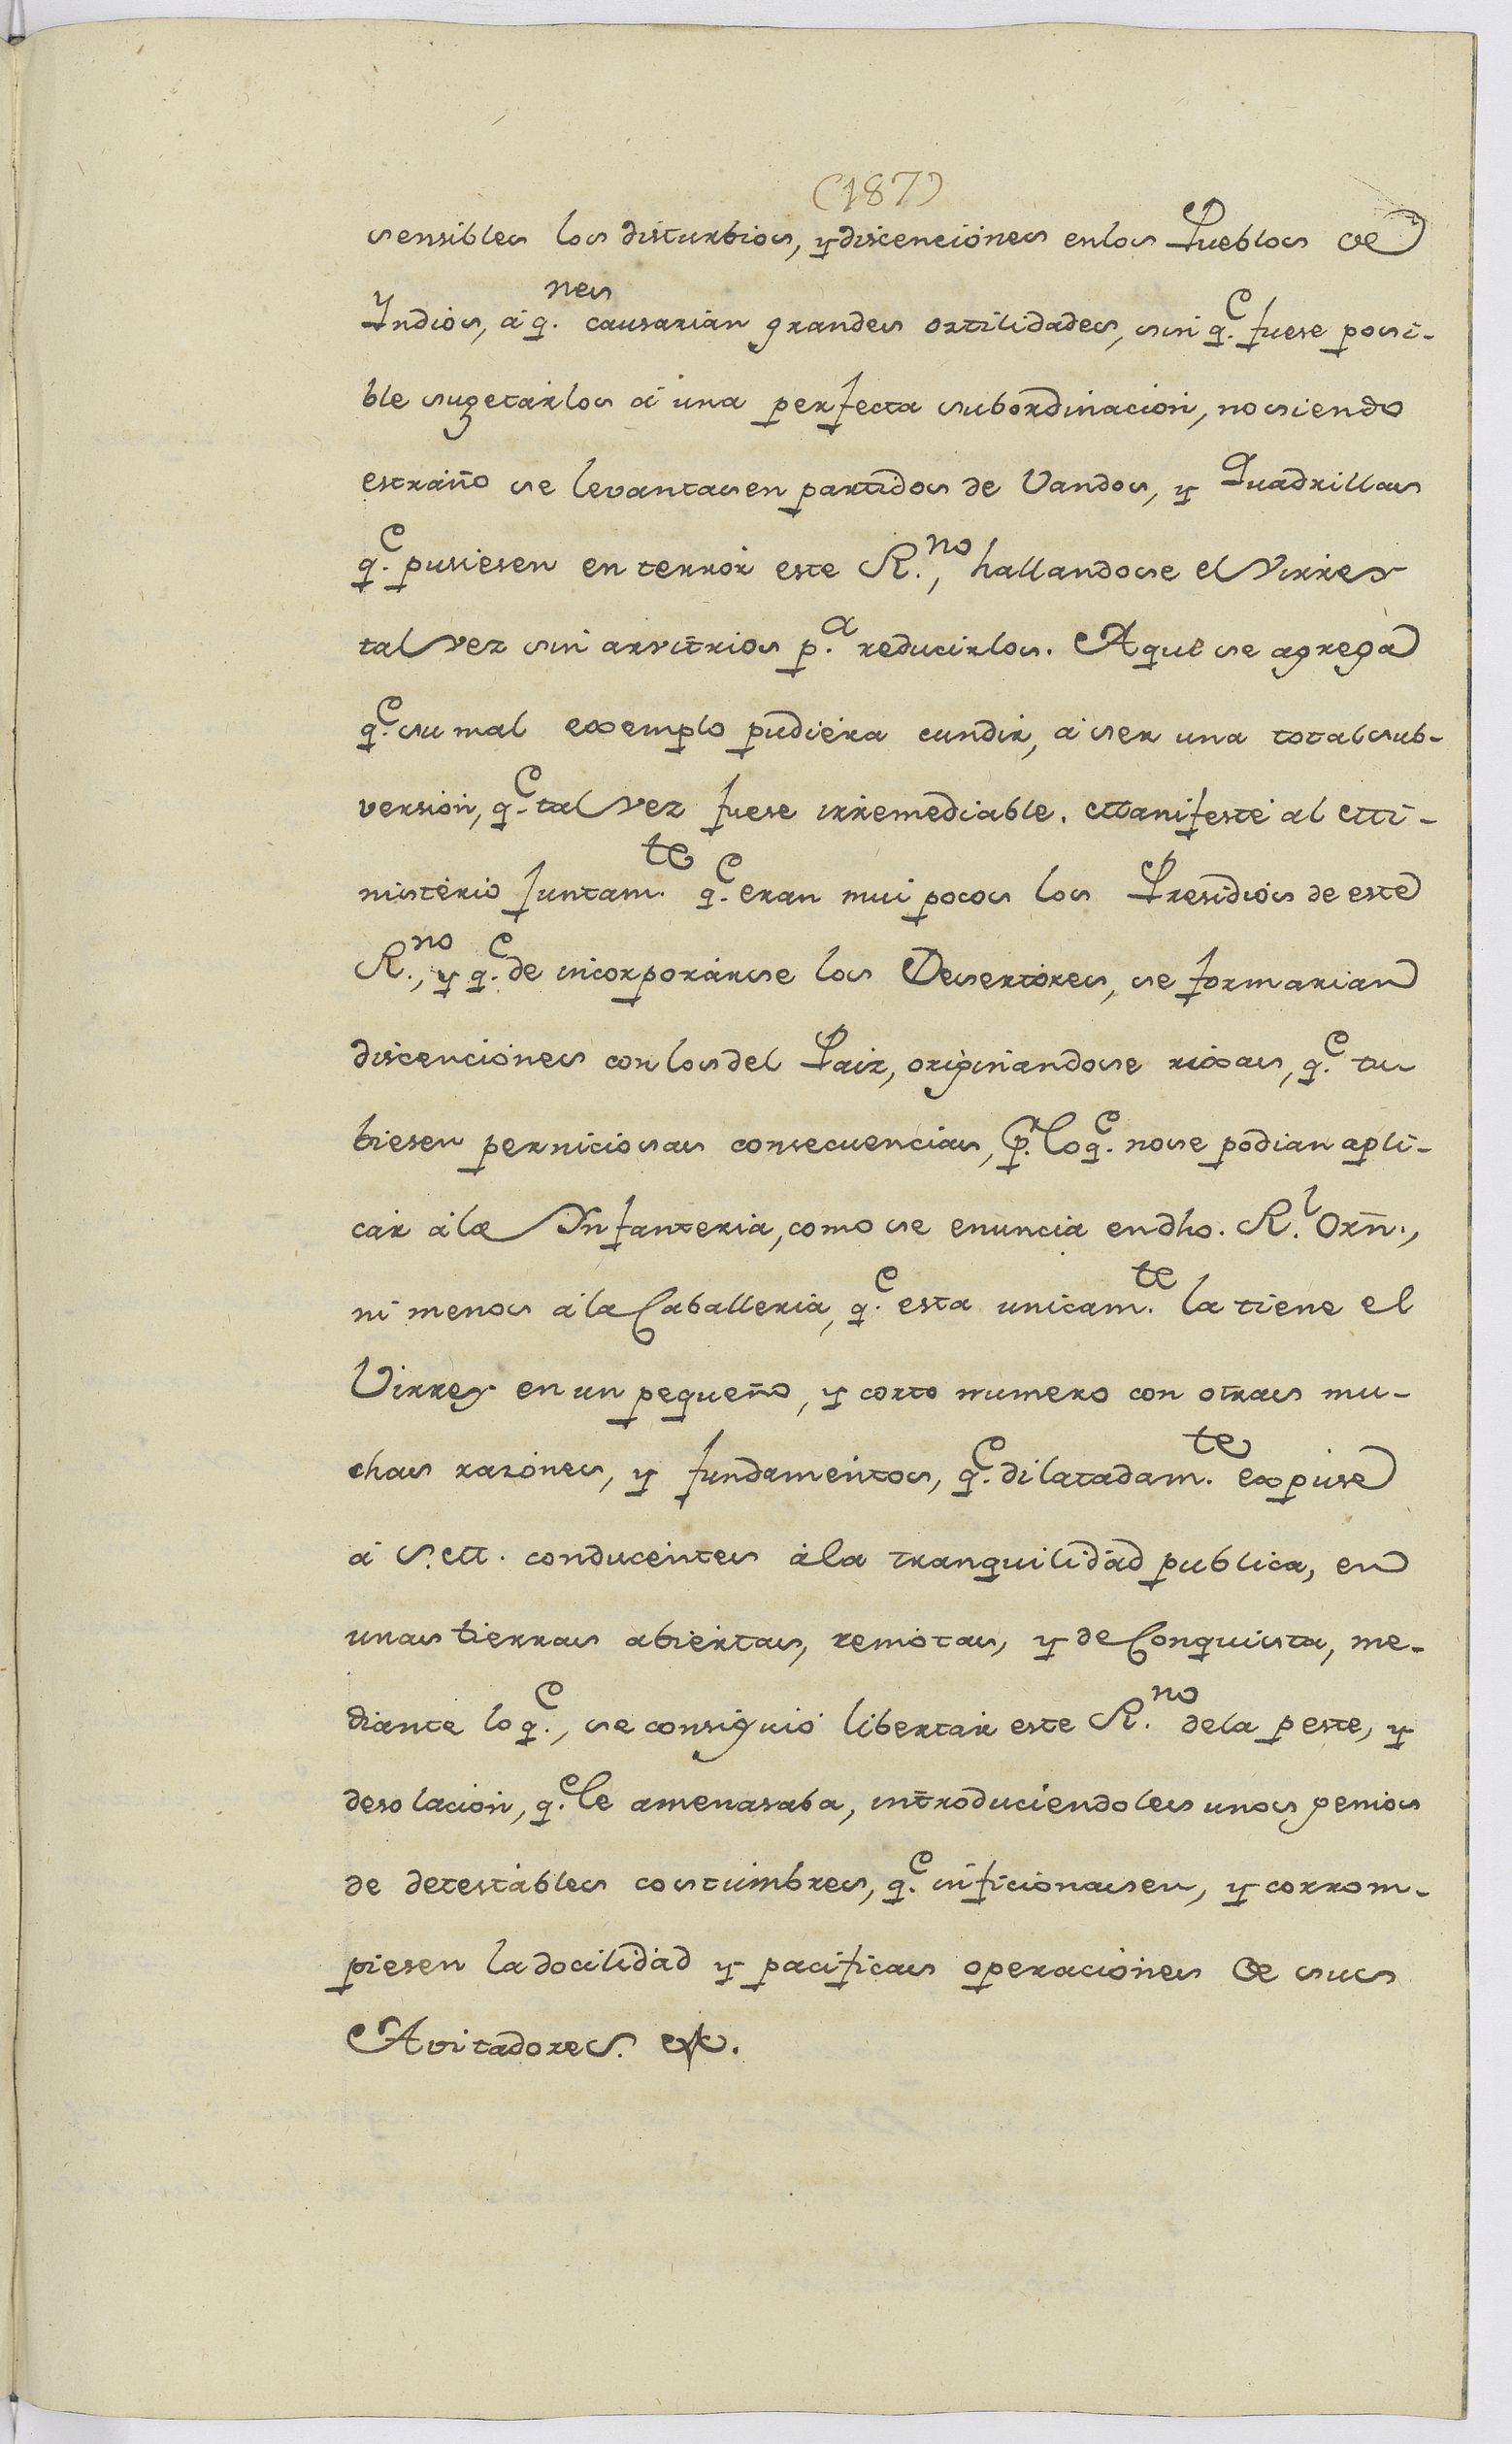 (187)
sensibles los disturbios, y discenciònes enlos Pueblos de
Yndios, á q.nes causarian grandes ostilidades, sin q.e fuese posi-
ble sugetàrlos á una perfecta subordinacion, no siendo
estraño se levantasen partidos de Vandos, y Quadrillas
q.e pusiesen en terror este R.no, hallandose el Virrey
tal vez sin arvitrios p.a reducirlos. A que se agrega
q.e su mal exemplo pudiera cundir, á ser una total sub-
version, q.e tal vez fuese irremediable. Manifesté al Mi-
nistèrio juntam.te q.e eran mui pocos los Presidios de este
R.no, y q.e de incorporàrse los Desertòres, se formarian
discenciònes con los del Paiz, originandose rixas, q.e tu
biesen perniciosas consecuencias, p.r lo q.e nose podian apli-
càr àla Ynfanteria, como se enuncia endho. R.l Orñ.,
ni menos àla Caballeria, q.e esta unicam.te la tiene el
Virrey en un pequeño, y corto numero con otras mu-
chas razònes, y fundamentos, q.e dilatadam.te expuse
á S.M. conducentes àla tranquilidàd publica, en
unas tierras abiertas, remotas, y de Conquista, me-
diante lo q.e, se consiguió libertàr este R.no dela peste, y
desolacion, q.e le amenasaba, introduciendoles unos genios
de detestàbles costumbres, q.e inficionasen, y corrom-
piesen la docilidàd y pacificas operaciònes de sus
Avitadores. &c.